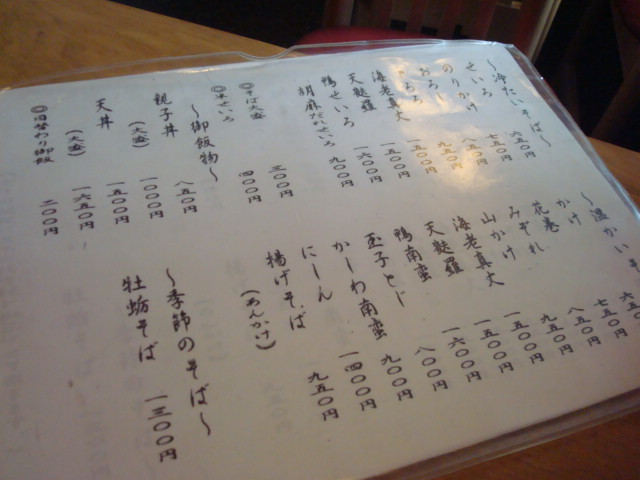 ～冷たいそば～
せいろ 六五〇円
のりかけ 七五〇円
おろし 八五〇円
とろろ 九五〇円
海老真丈 一五〇〇円
天麩羅 一五〇〇円
鴨せいろ 一六〇〇円
胡麻だれせいろ 九〇〇円
◎そば大盛 三〇〇円
◎半せいろ 四〇〇円
～御飯物～
親子丼 八五〇円
(大盛) 一〇〇〇円
天丼 一五〇〇円
(大盛) 一六五〇円
◎日替わり御飯 二〇〇円
～温かいそ
かけ 六五〇
花巻 七五〇円
みぞれ 八五〇円
山かけ 九五〇円
海老真丈 一五〇〇円
天麩羅 一五〇〇円
鴨南蛮 一六〇〇円
玉子とじ 八〇〇円
かしわ南蛮 九〇〇円
にしん 一四〇〇円
揚げそば (あんかけ) 九五〇円
～季節のそば～
牡蛎そば 一三〇〇円